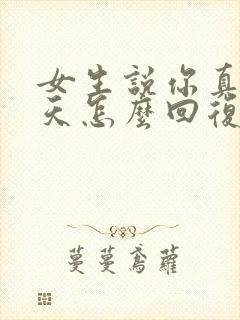 女生說你真
天怎麼回復
蔓蔓鳶蘿